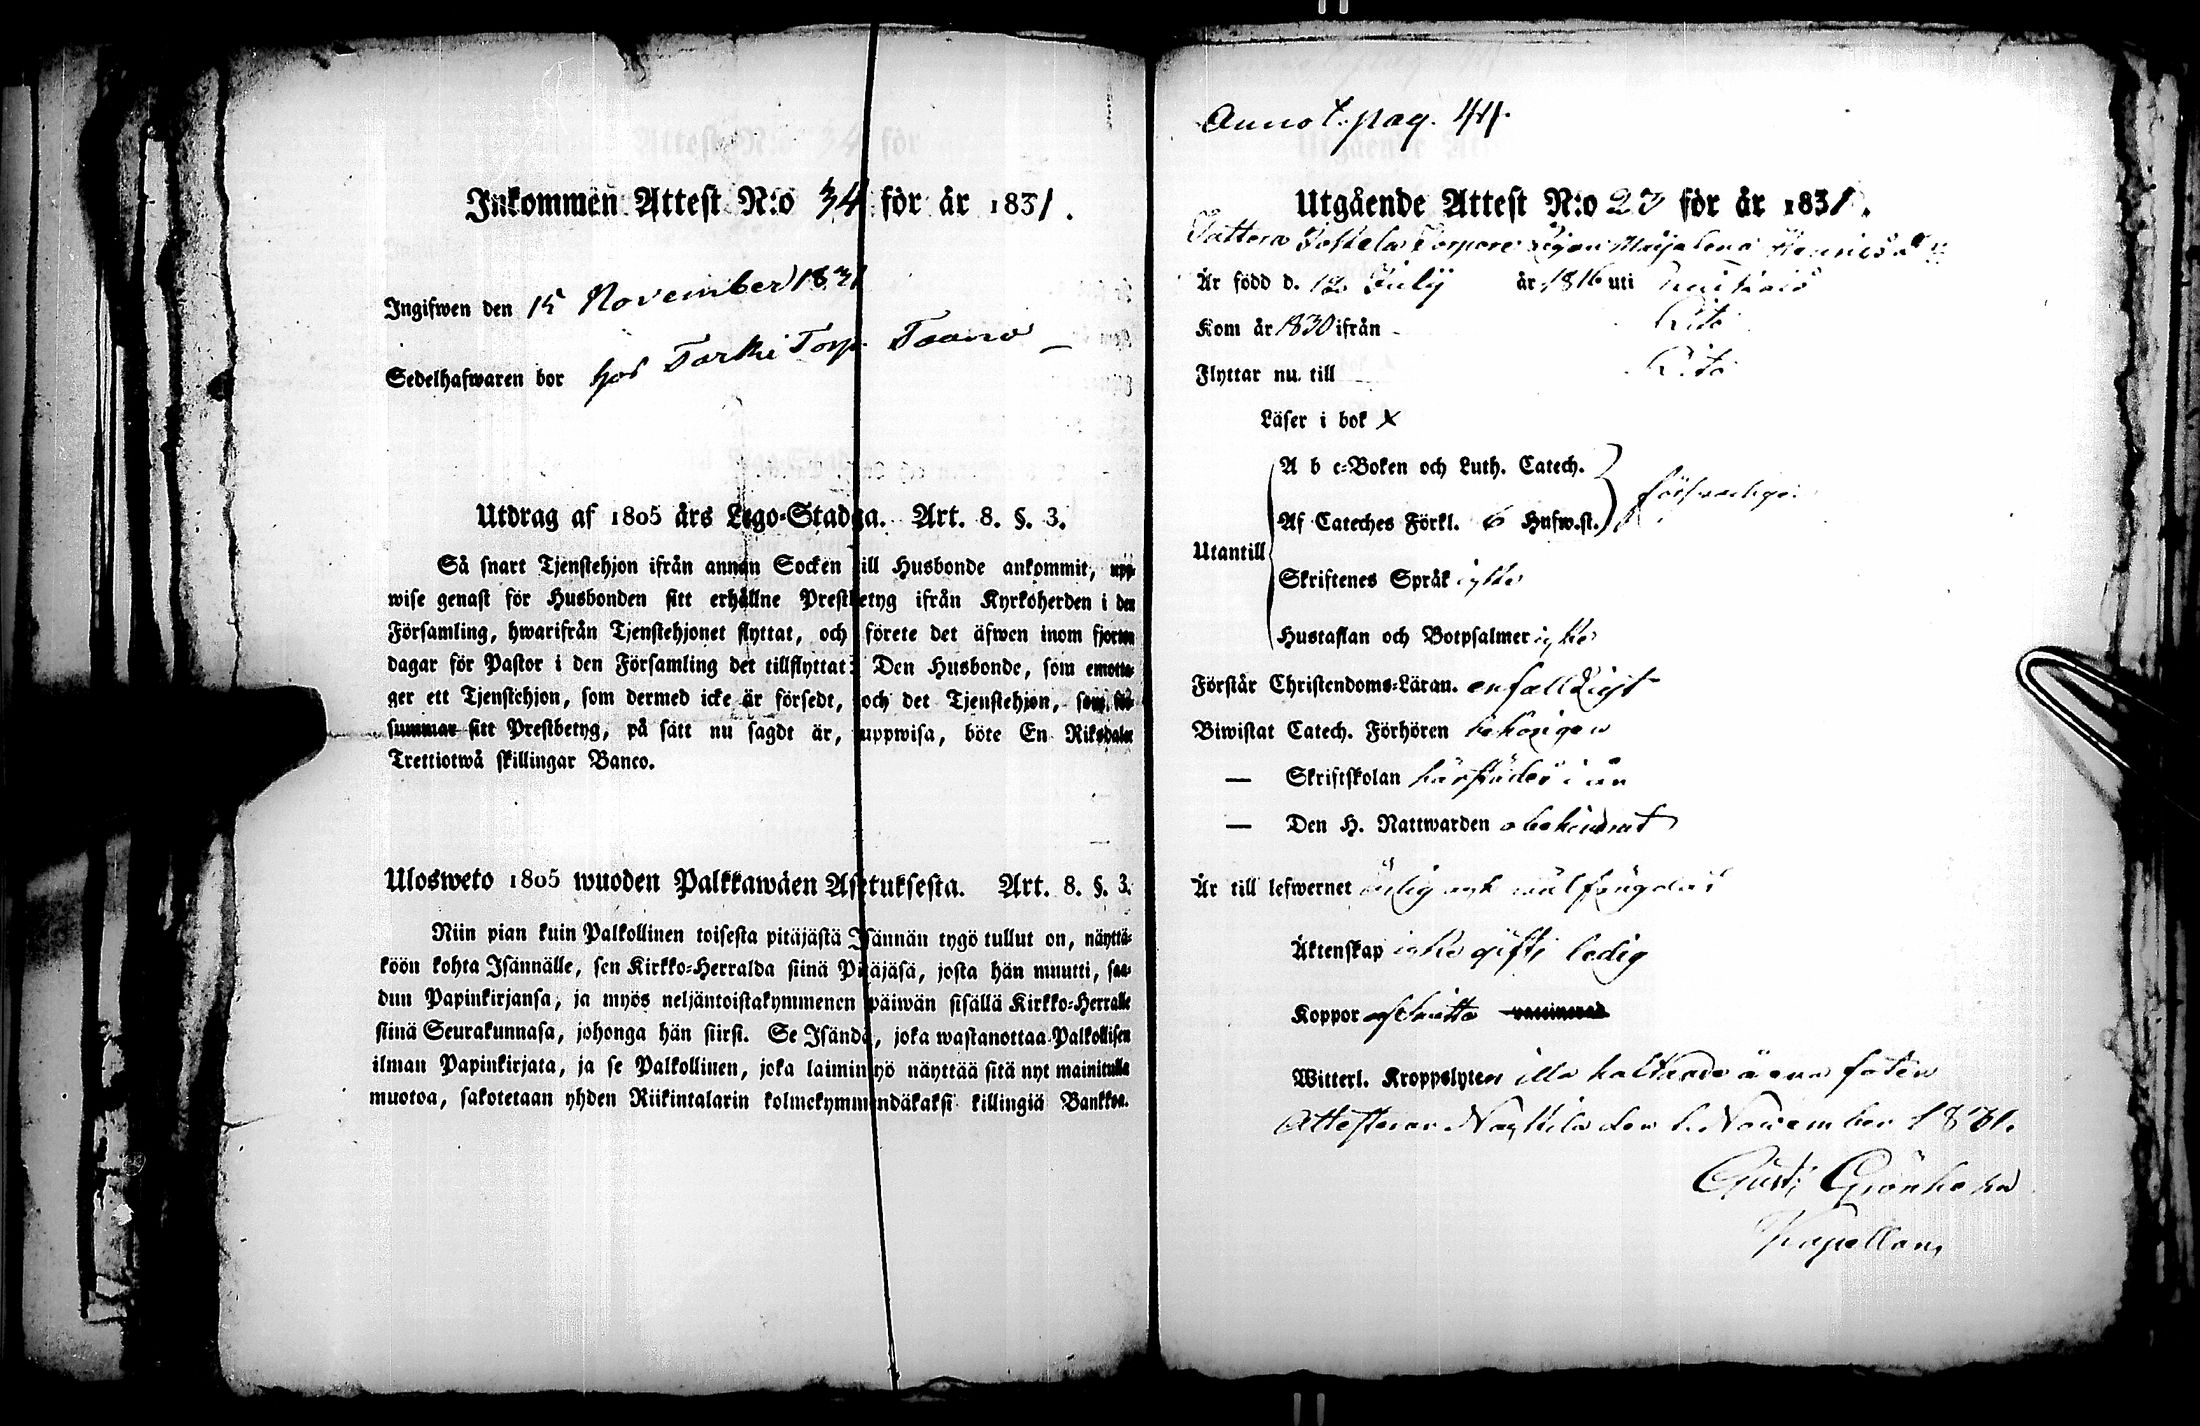 Inkommen Attest N:o 34 för år 1831.
Ingifwen den 15 November 1831
Sedelhafwaren bor hos Tarki Torp
Utdrag af 1805 års Lego-Stadga. Art. 8. §. 3.
Så snart Tjenstehjon ifrån annan Socken till Husbonde ankommit, upp-
wise genast för Husbonden sitt erhållne Prestbetyg ifrån Kyrkoherden i den
Församling, hwarifrån Tjenstehjonet flyttat, och förete det äfwen inom fjorton
dagar för Pastor i den Församling det tillflyttat: Den Husbonde, som emotta-
ger ett Tjenstehjon, som dermed icke är försedt, och det Tjenstehjon, som för-
summar sitt Prestbetyg, på sätt nu sagdt är, uppwisa, böte En Riksdaler
Trettiotwå skillingar Banco.
Ulosweto 1805 wuoden Palkkawäen Asetuksesta. Art. 8. §. 3.
Niin pian kuin Palkollinen toisesta pitäjästä Isännän tygö tullut on, näyttä-
köön kohta Isännälle, sen Kirkko-Herralda siinä Pitäjäsä, josta hän muutti, saa-
dun Papinkirjansa, ja myös neljäntoistakymmenen päiwän sisällä Kirkko-Herralle
siinä Seurakunnasa, johonga hän siirsi. Se Isändä, joka wastanottaa Palkollisen
ilman Papinkirjata, ja se Palkollinen, joka laiminlyö näyttää sitä nyt mainitulla
muotoa, sakotetaan yhden Riikintalarin kolmekymmendäkaksi killingiä Bankkoa.
Annot. pag. 44.
Utgående Attest N:o 23 för år 1831.
Torpare Maja Lena
Är född d. 12 Julÿ år 1816 uti
Kom år 1830 ifrån
Flyttar nu till
Läser i bok x
A b c-Boken och Luth. Catech.
Af Cateches Förkl. 6 Hufw.st. försvarlige
Utantill
Skriftenes Språk icke
Hustaflan och Botpsalmer icke
Förstår Christendoms-Läran. enfalldigt
Biwistat Catech. Förhören behörigen
— Skriftskolan härstädes i år
— Den H. Nattwarden obehindrat
Är till lefwernet ärlig och väl frägdad
Äktenskap icke gift, ledig
Koppor
Witterl. Kroppslyten illa haltande å ena foten
Attesterar Nagu den 1. November 1831.
Gust: Grönholm
Kapellan,